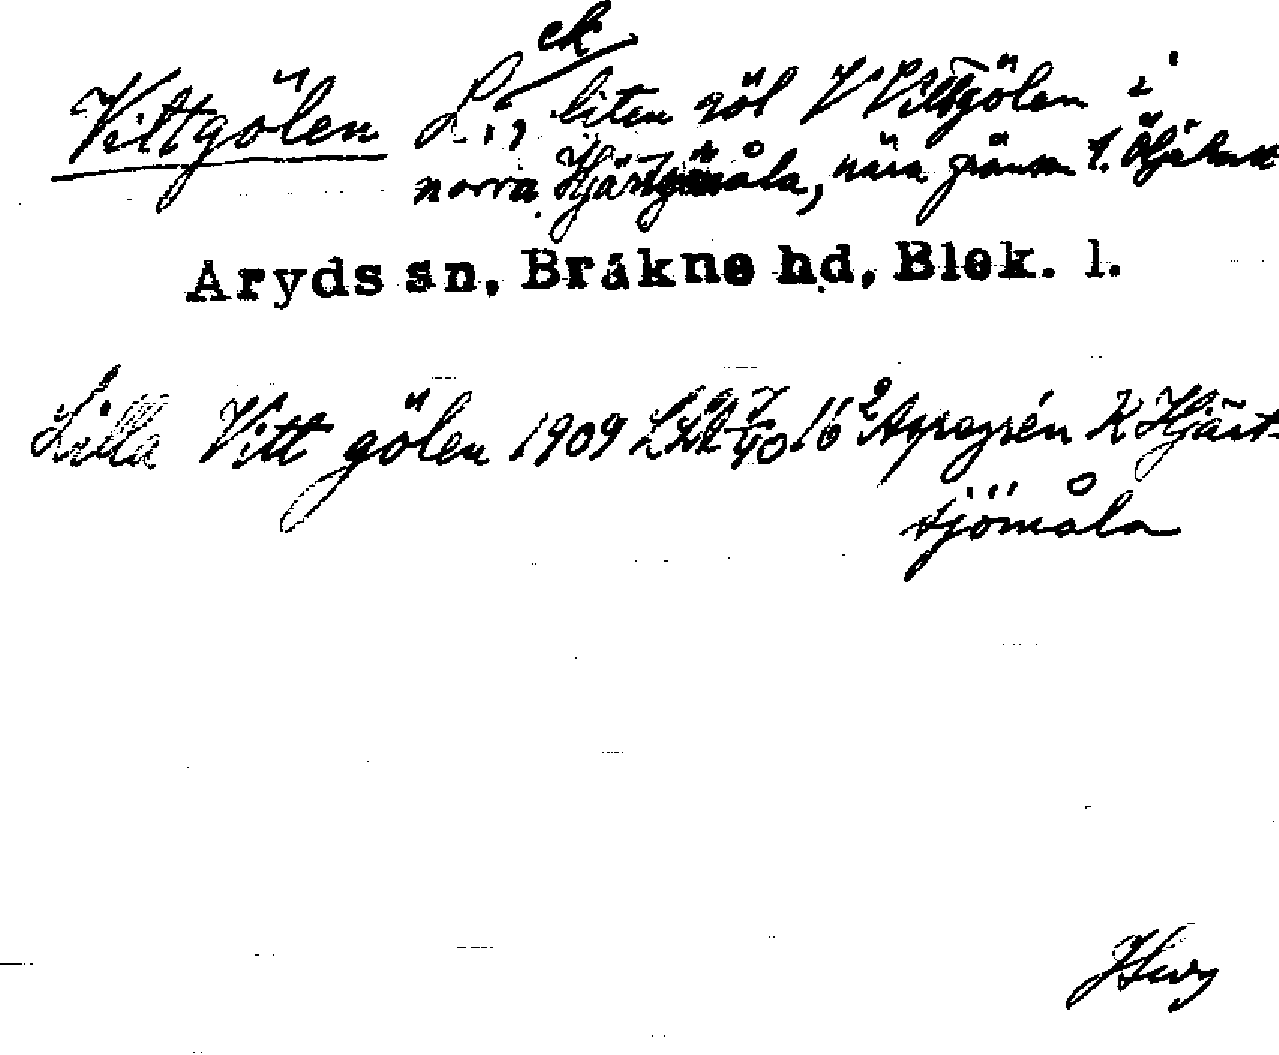 ek
Vittgölen L., liten göl V Vittgölen i
norra Hjärtsjömåla, nära gränsen t. Öljehult
Aryds sn, Bräkne hd, Blek. l.
Lilla Vitt gölen 1909 LSA 16 Agregrén K Hjärt-
sjömåla